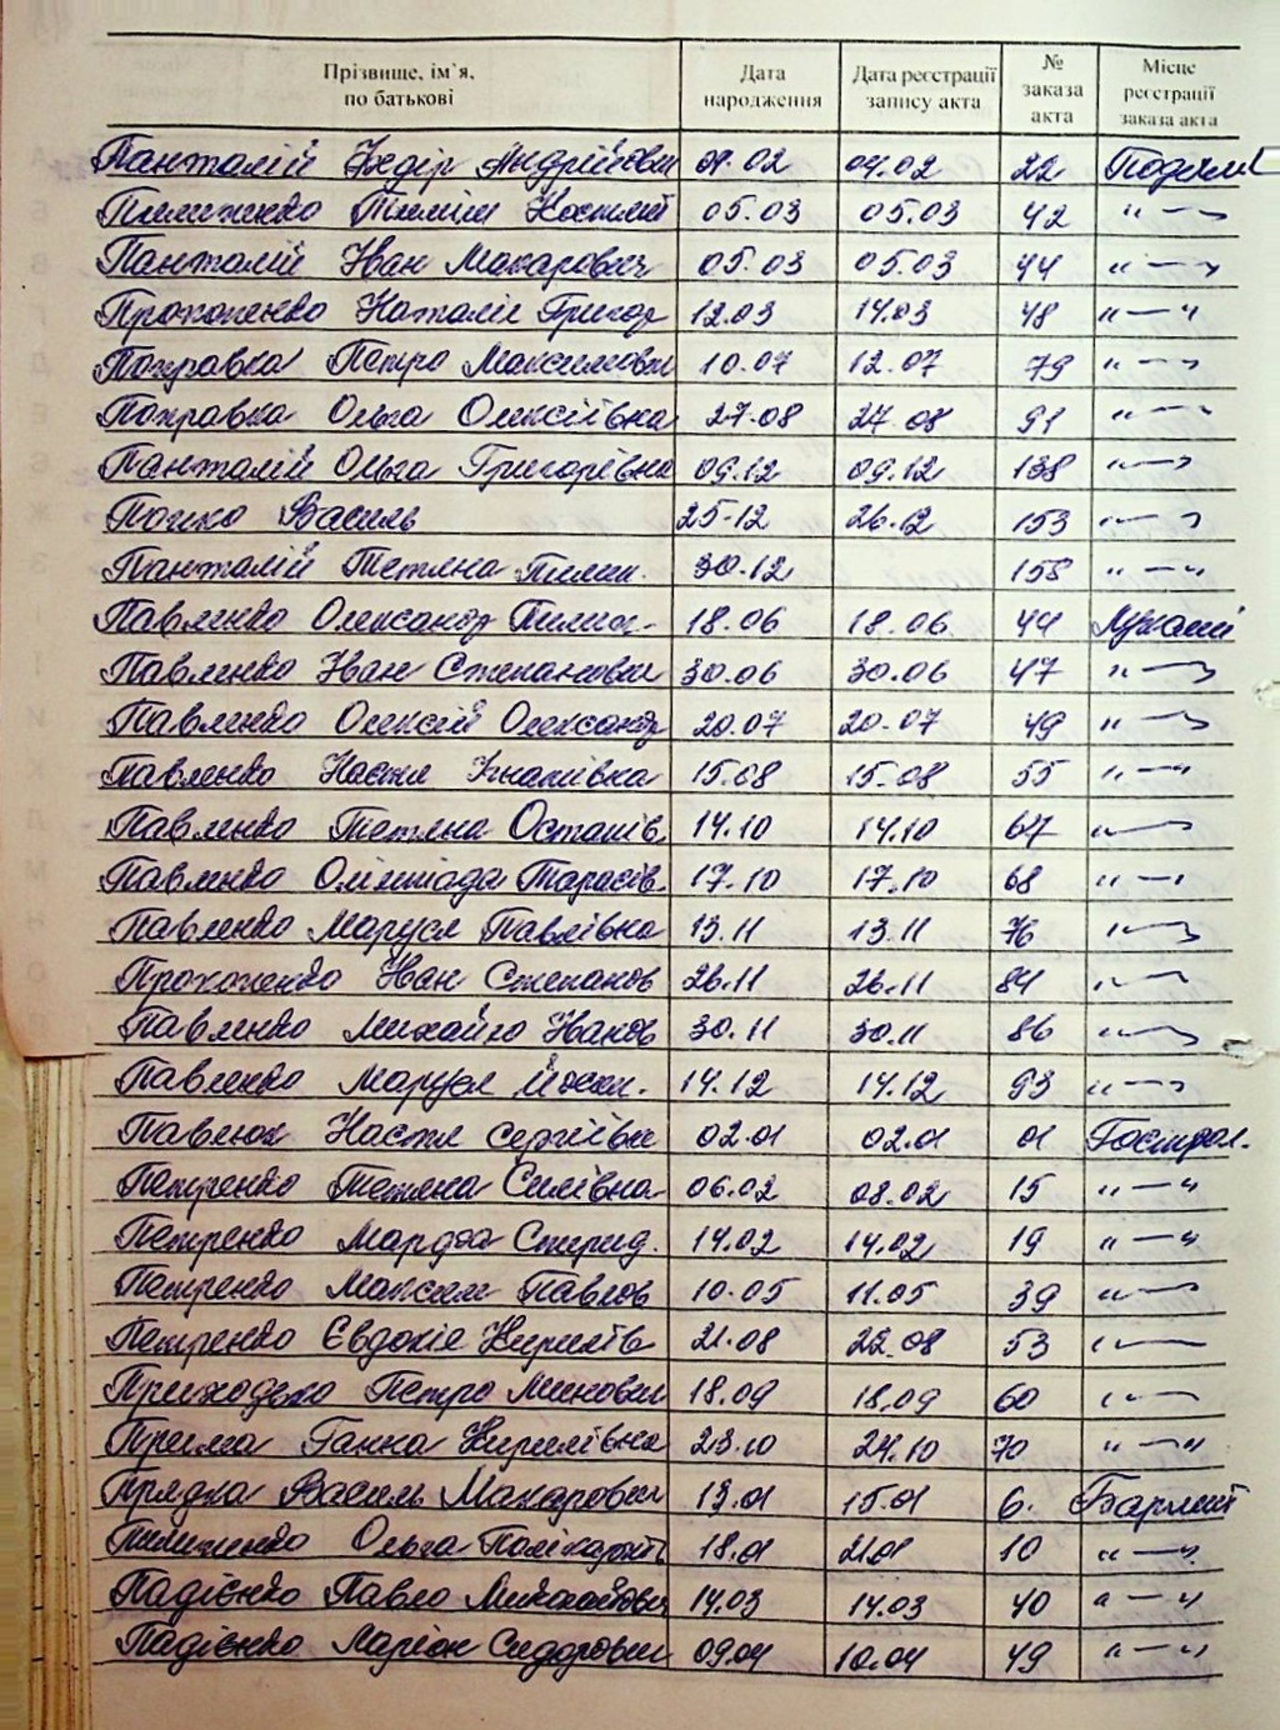 Прізвище, ім`я, по батькові Дата народження Дата реєстрації запису акта № заказа акта Місце реєстрації заказа акта
Панталій Андрійович 02 04.02 22
Костян 05.03 05.03 42 " — "
Панталій Іван Макарович 05.03 05.03 44 " — "
Прокопенко Наталія Григор 12.03 14.03 48 " — "
Поправка Петро Максимович 10.07 12.07 79 " — "
Поправка Ольга Олексіївна 27.08 27.08 91 " — "
Панталій Ольга Григорівна 09.12 09.12 138 " — "
Василь 25.12 26.12 153 " — "
Панталій Тетяна Пилип. 30.12 158 " — "
Павленко Олександр Пилип. 18.06 18.06 44
Павленко Іван Степанович 30.06 30.06 47 " — "
Павленко Олексій Олександр 20.07 20.07 49 " — "
Павленко Настя Ігнатівна 15.08 15.08 55 " — "
Павленко Тетяна Остапів. 14.10 14.10 67 " — "
Павленко Олімпіада Тарасів. 17.10 17.10 68 " — "
Павленко Маруся Павлівна 13.11 13.11 76 " — "
Прокопенко Іван Степанов 26.11 26.11 84 " — "
Павленко Михайло Іванов 30.11 30.11 86 " — "
Павленко Маруся Йосип. 14.12 14.12 93 " — "
Павлюк Настя Сергіївна 02.01 02.01 01
Петренко Тетяна Силівна 06.02 08.02 15 " — "
Петренко Марфа Спирид. 14.02 14.02 19 " — "
Петренко Максим Павлов 10.05 11.05 39 " — "
Петренко Євдокія Кирилів 21.08 22.08 53 " — "
Приходько Петро Минович 18.09 18.09 60 " — "
Прима Ганна Кирилівна 23.10 24.10 70 " — "
Прядка Василь Макарович 13.01 15.01 6.
Пилипенко Ольга Полікарпів 18.01 21.01 10 " — "
Падієнко Павло Миколайович 14.03 14.03 40 " — "
Падієнко Маріон Сидорович 09.04 10.04 49 " — "